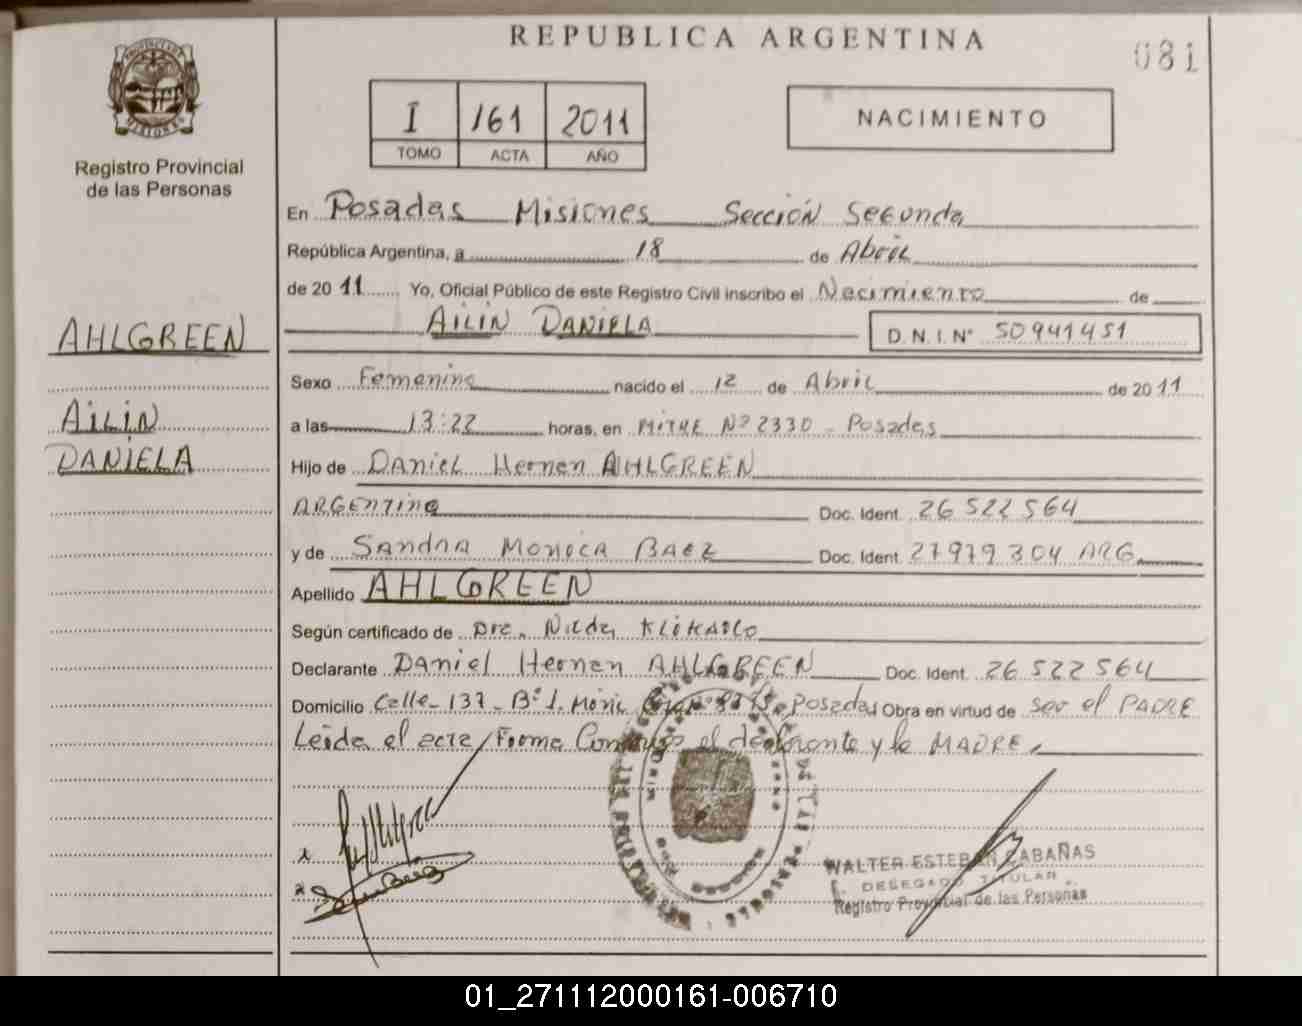 REPUBLICA ARGENTINA
081
I 161 2011
TOMO ACTA AÑO
NACIMIENTO
Registro Provincial
de las Personas
MISIONES
En Posadas Misiones Sección Segunda
República Argentina, a 18 de Abril
de 2011 Yo, Oficial Público de este Registro Civil inscribo el Nacimiento de
AiLiN DANiELA D.N.I.Nº 50941451
AHLGREEN
AiLiN
DANiELA
Sexo Femenino nacido el 12 de Abril de 2011
a las 13:22 horas, en MiTRE Nº 2330 - Posadas
Hijo de DANieL Hernan AHLGREEN
ARGENTINO Doc. Ident. 26 522 564
y de SANdRA MONiCA BAEZ Doc. Ident. 27979 304 ARG.
Apellido AHLGREEN
Según certificado de Dra. Nilda
Declarante DANiel Hernan AHLGREEN Doc. Ident. 26 522 564
Domicilio Calle - 137 - Bº Posadas Obra en virtud de ser el PADRE
Leida el acta, Firma el declarante y la MADRE
WALTER ESTEBAN CABAÑAS
DELEGADO TITULAR
Registro Provincial de las Personas
01_271112000161-006710